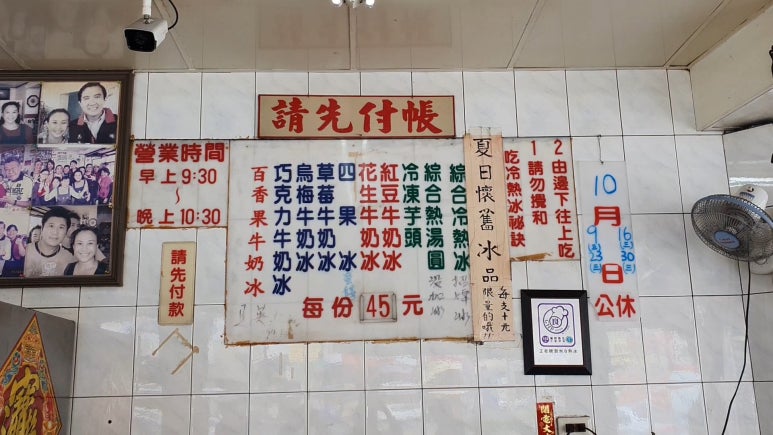 請先付帳
營業時間
早上9:30
~
晚上10:30
請先付款
綜合冷熱冰
綜合熱湯圓
冷凍芋頭
紅豆牛奶冰
花生牛奶冰
四果冰
草莓牛奶冰
烏梅牛奶冰
巧克力牛奶冰
百香果牛奶冰
每份45元
夏日懷舊冰品
限量的哦!!
2由邊下往上吃
1請勿攪和
吃冷熱冰祕訣
10月
9 16
23 30
日公休